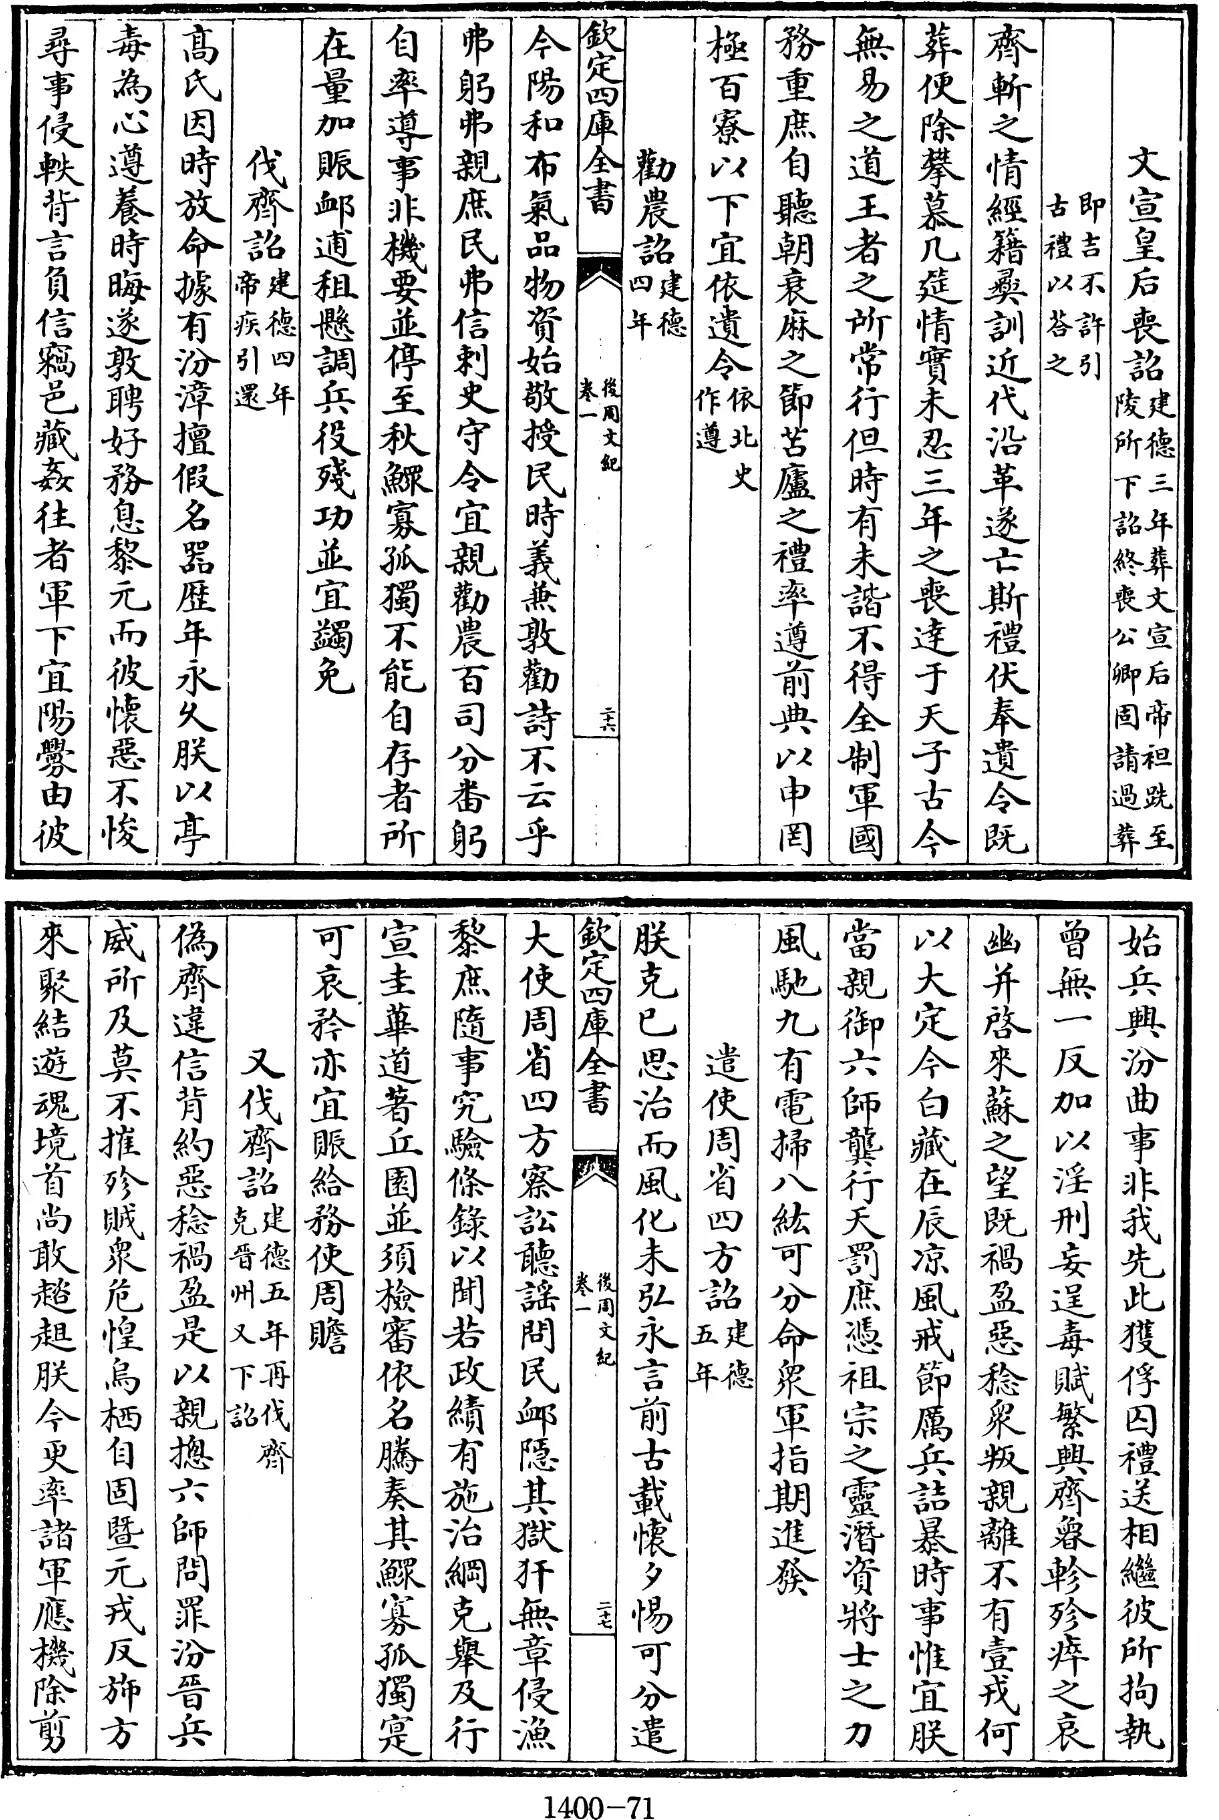 文宣皇后喪詔建德三年葬文宣后帝袒跣至陵所下詔終喪公卿固請過葬
即吉不許引古禮以答之
齊斬之情經籍彞訓近代沿革遂亡斯禮伏奉遺令既
葬便除攀慕几筵情實未忍三年之喪達于天子古今
無易之道王者之所常行但時有未諧不得全制軍國
務重庶自聽朝衰麻之節苫廬之禮率遵前典以申罔
極百寮以下宜依遺令依北史作遵
勸農詔建德四年
欽定四庫全書
後周文紀
卷一
二十六
今陽和布氣品物資始敬授民時義兼敦勸詩不云乎
弗躬弗親庶民弗信刺史守令宜親勸農百司分番躬
自率導事非機要並停至秋鰥寡孤獨不能自存者所
在量加賑卹逋租懸調兵役殘功並宜蠲免
伐齊詔建德四年帝疾引還
高氏因時放命據有汾漳擅假名器歴年永久朕以亭
毒為心遵養時晦遂敦聘好務息黎元而彼懷惡不悛
尋事侵軼背言負信竊邑藏姦往者軍下宜陽釁由彼
始兵興汾曲事非我先此獲俘囚禮送相繼彼所拘執
曾無一反加以淫刑妄逞毒賦繁興齊魯軫殄瘁之哀
幽并啓來蘇之望既禍盈惡稔衆叛親離不有壹戎何
以大定今白藏在辰凉風戒節厲兵詰暴時事惟宜朕
當親御六師龔行天罰庶憑祖宗之靈潛資將士之力
風馳九有電掃八紘可分命衆軍指期進發
遣使周省四方詔建德五年
朕克已思治而風化未弘永言前古載懷夕惕可分遣
欽定四庫全書
後周文紀
卷一
二十七
大使周省四方察訟聽謡問民卹隱其獄犴無章侵漁
黎庶隨事究驗條錄以聞若政績有施治綱克舉及行
宣圭蓽道著丘園並須檢審依名騰奏其鰥寡孤獨寔
可哀矜亦宜賑給務使周贍
又伐齊詔建德五年再伐齊克晉州又下詔
偽齊違信背約惡稔禍盈是以親摠六師問罪汾晉兵
威所及莫不摧殄賊衆危惶烏栖自固暨元戎反斾方
來聚結遊魂境首尚敢趦趄朕今更率諸軍應機除剪
1400-71